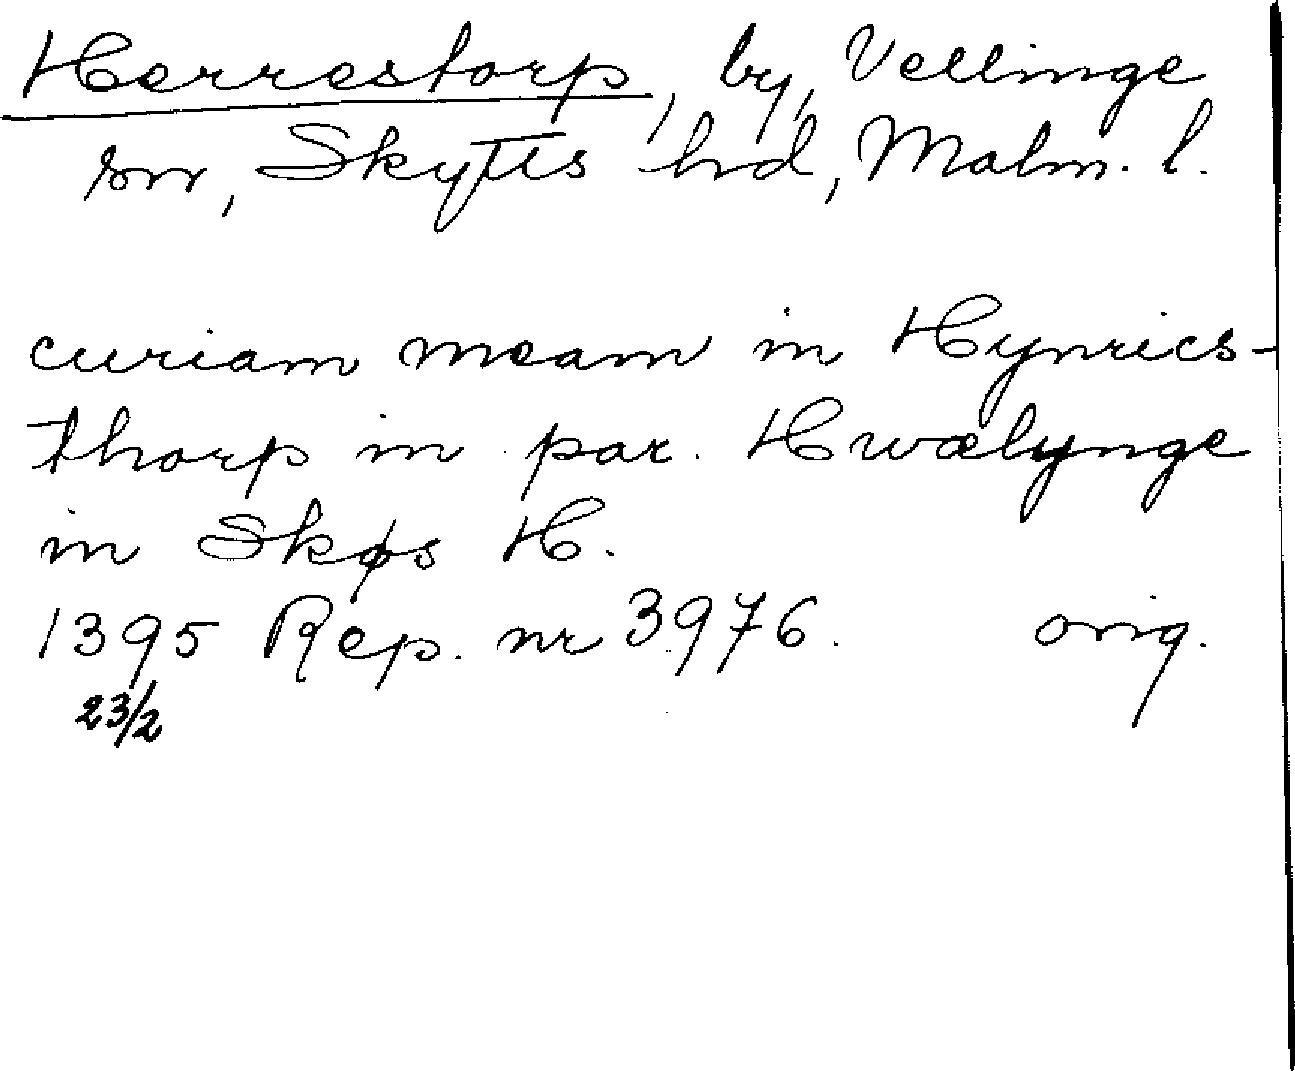 Herrestorp, by, Vellinge
sn, Skytts hd, Malm. l.
curiam meam in Hynrics-
thorp in par. Hwælynge
in Skøs H.
1395 Rep. nr 3976. orig.
23/2